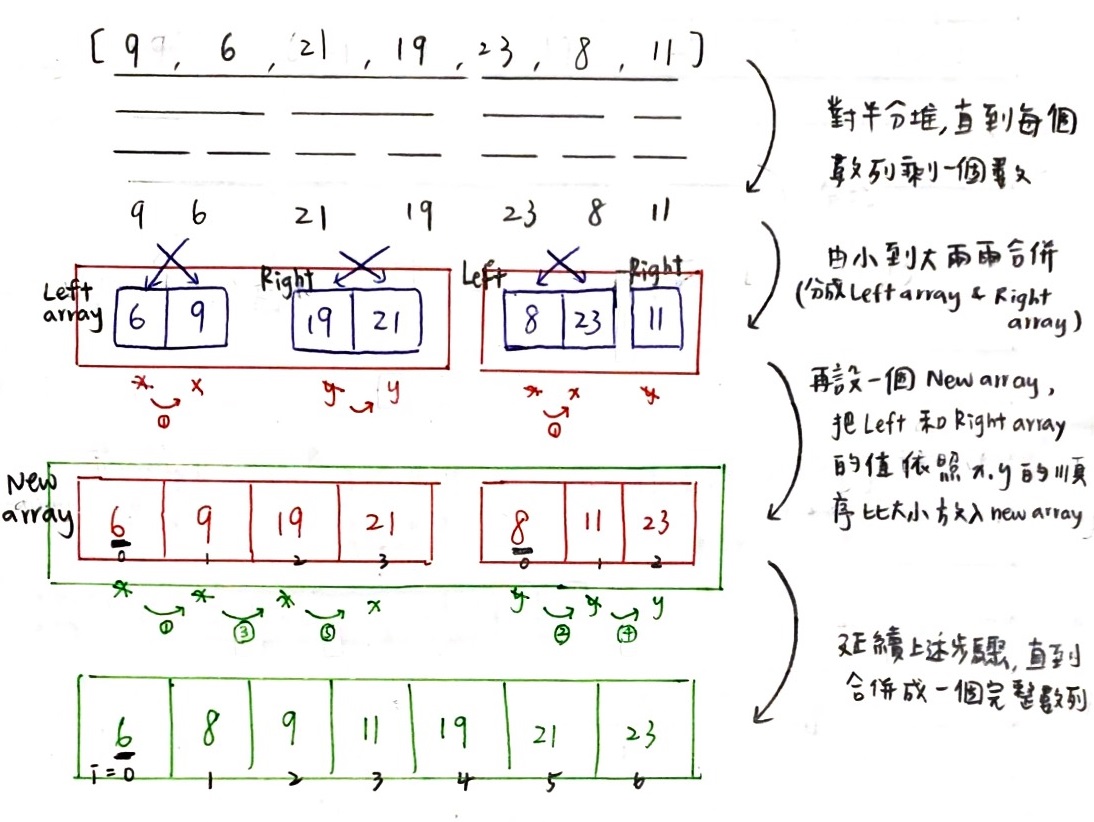 [ 9 , 6 , 21 , 19 , 23 , 8 , 11 ]
對半分堆,直到每個
數列剩一個數
9 6 21 19 23 8 11
由小到大兩兩合併
(分成 Left array & Right
array)
Left
array
Right
Left
Right
6 9 19 21 8 23 11
x x y y x x y
① ①
再設一個 New array,
把 Left 和 Right array
的值依照 x.y 的順
序比大小放入 new array
New
array
6 9 19 21 8 11 23
0 1 2 3 0 1 2
x x x x y y y
① ③ ⑤ ② ④
延續上述步驟,直到
合併成一個完整數列
6 8 9 11 19 21 23
i=0 1 2 3 4 5 6